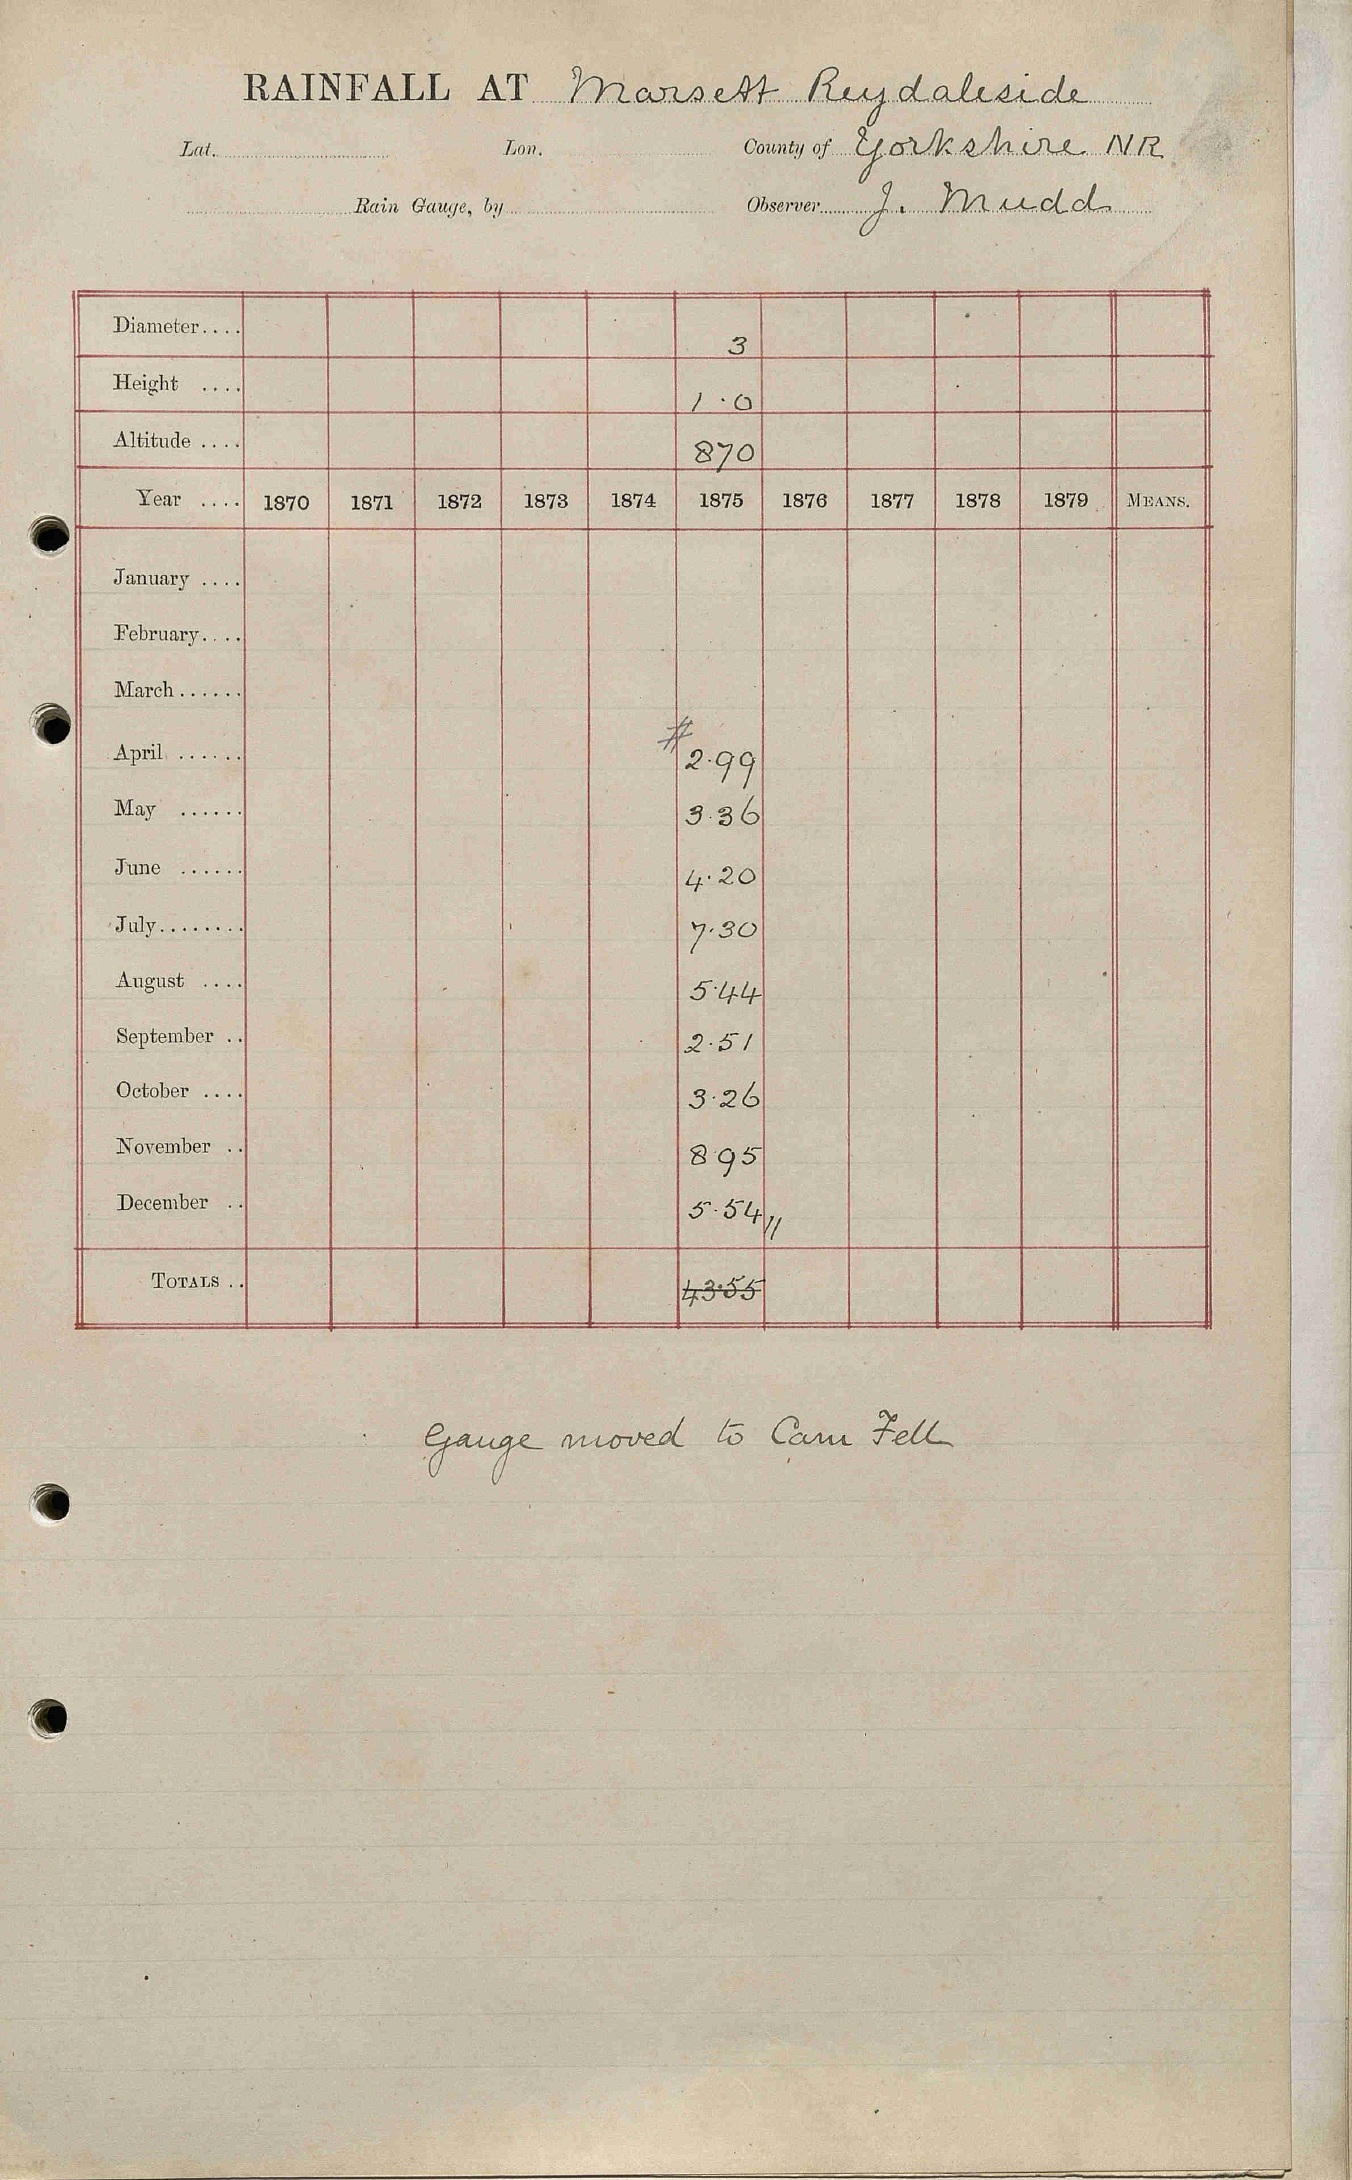 RAINFALL AT Marsett Reydaleside
Lat. Lon. County of Yorkshire NR
Rain Gauge, by Observer J. Mudd
Diameter.... 3
Height .... 1.0
Altitude .... 870
Year .... 1870 1871 1872 1873 1874 1875 1876 1877 1878 1879 MEANS.
January ....
February....
March......
#
April ...... 2.99
May ...... 3.36
June ...... 4.20
July........ 7.30
August .... 5.44
September .. 2.51
October .... 3.26
November .. 8.95
December .. 5.54 //
TOTALS .. 43.55
Gauge moved to Cam Fell